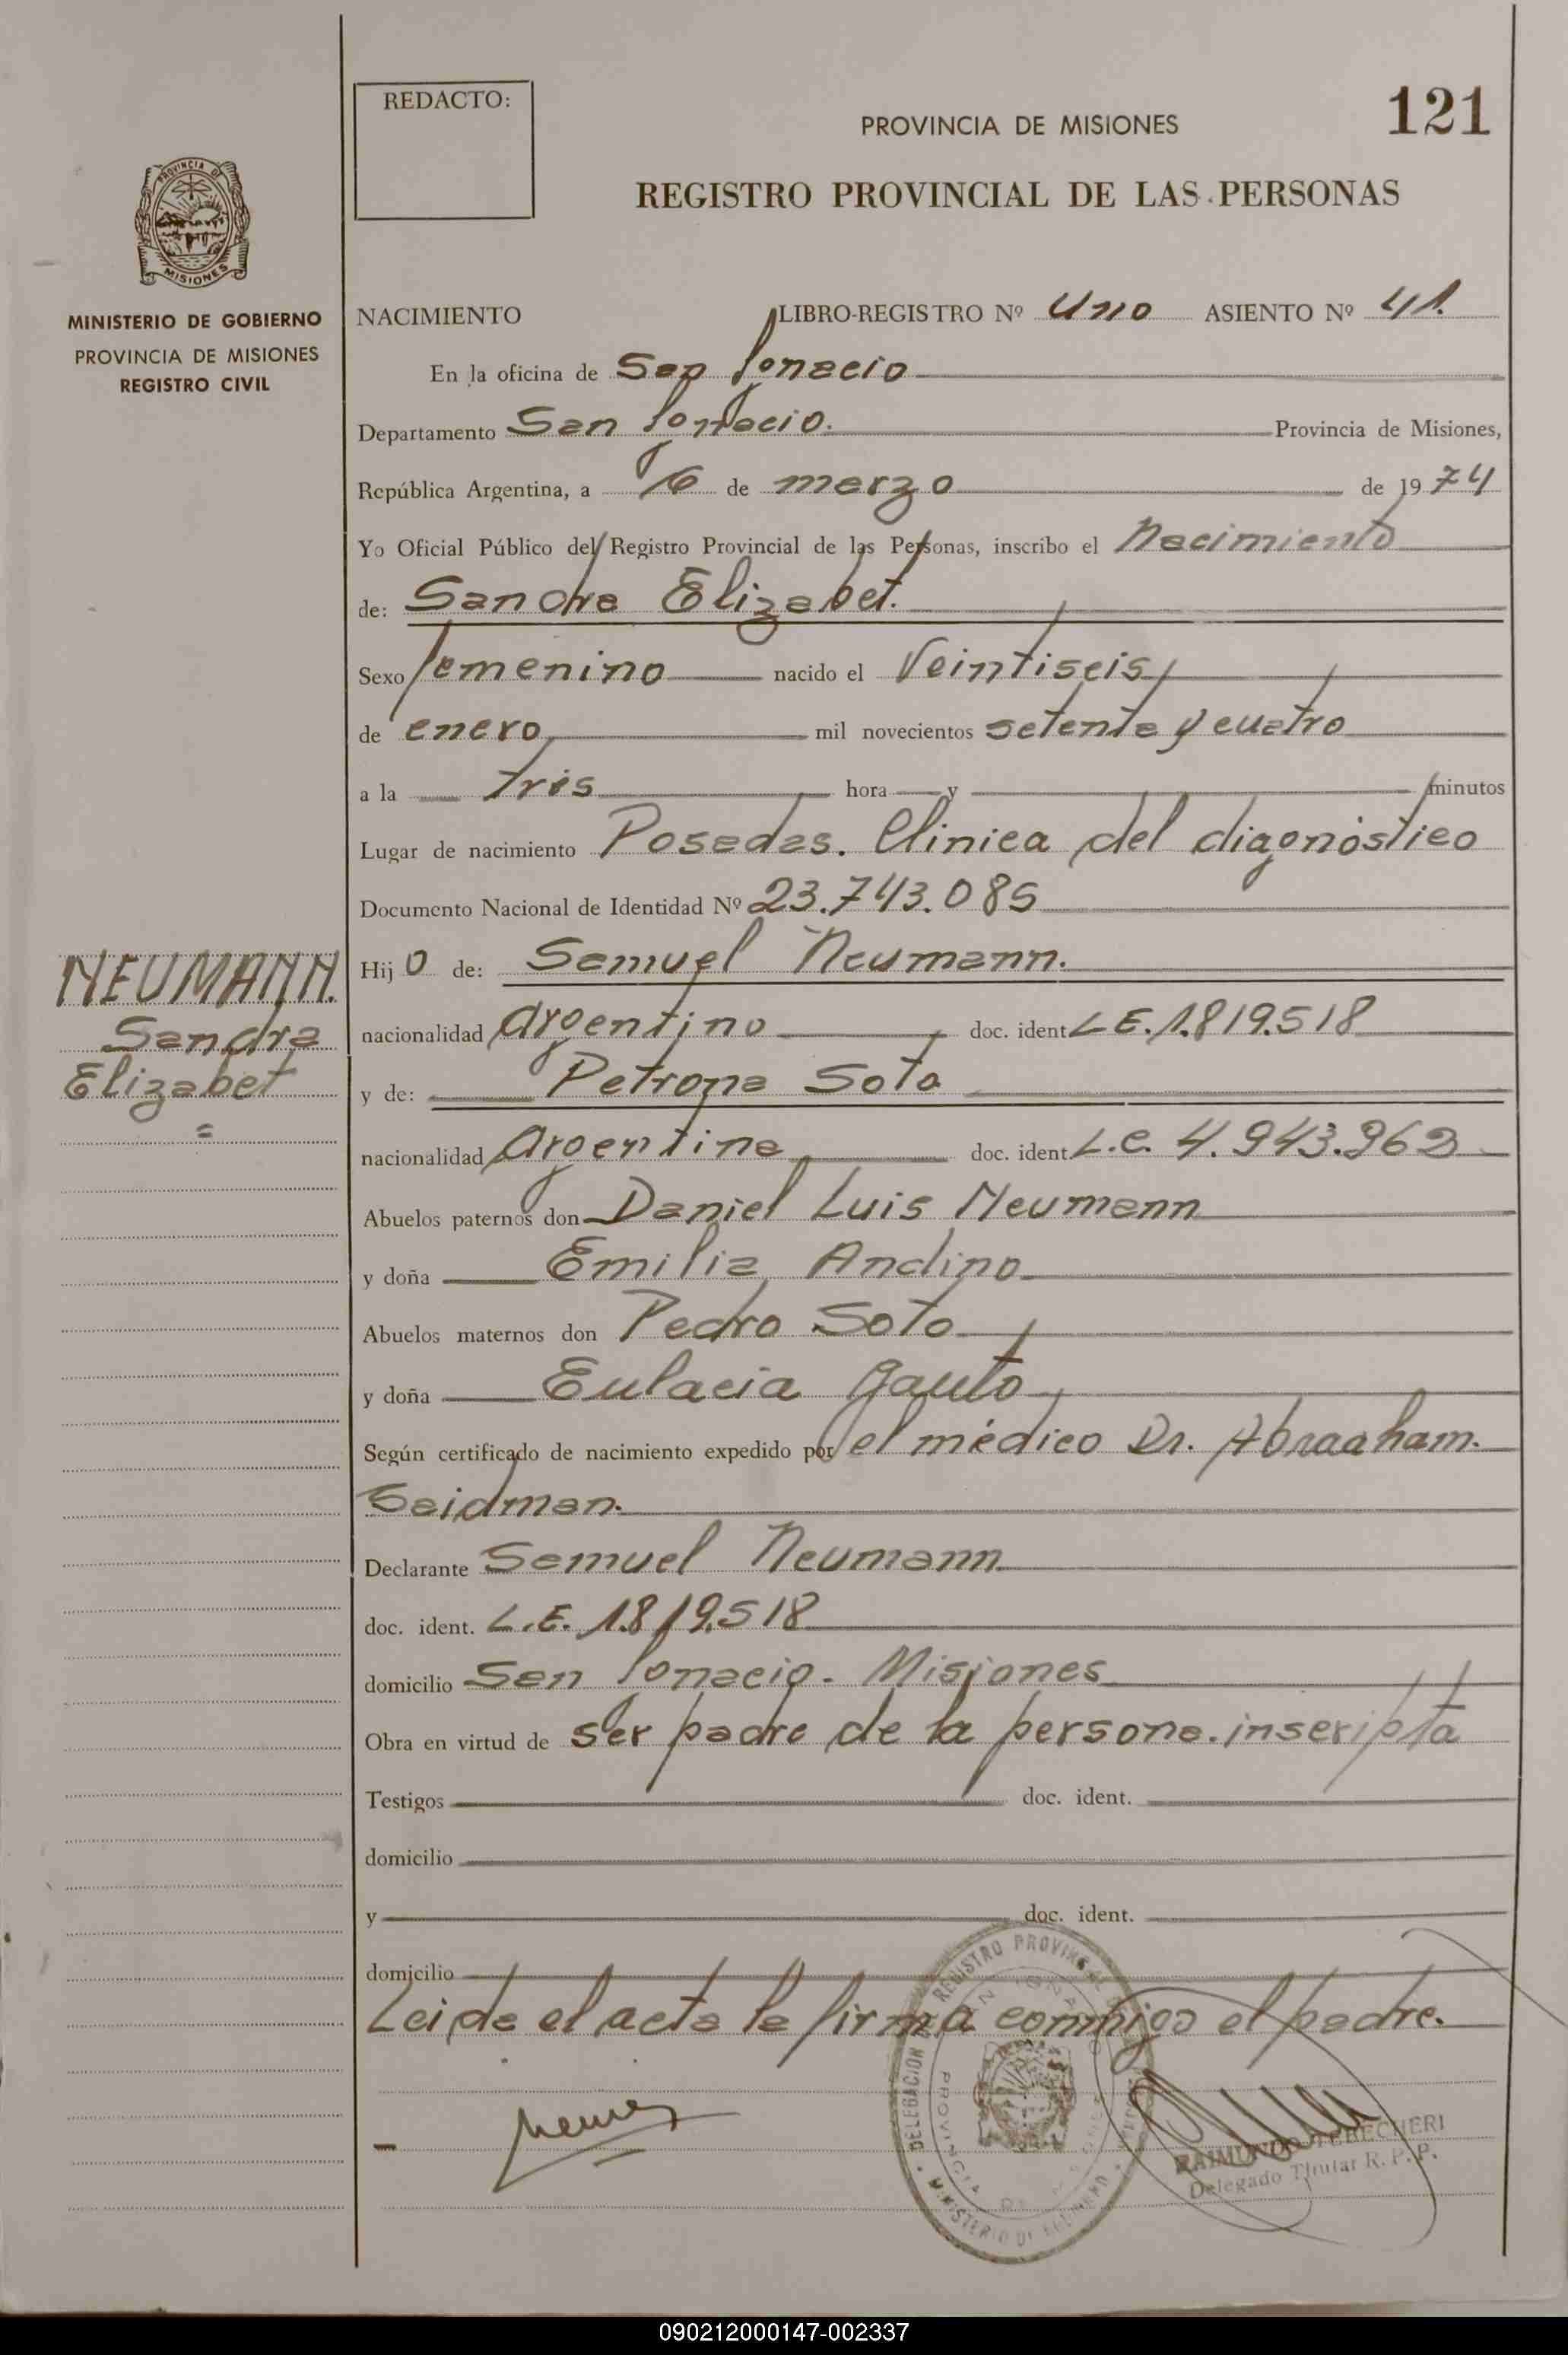 REDACTO:
PROVINCIA DE MISIONES
121
REGISTRO PROVINCIAL DE LAS PERSONAS
PROVINCIA DE
MISIONES
MINISTERIO DE GOBIERNO
PROVINCIA DE MISIONES
REGISTRO CIVIL
NACIMIENTO LIBRO-REGISTRO Nº Uno ASIENTO Nº 41.
En la oficina de San Ignacio
Departamento San Ignacio. Provincia de Misiones,
República Argentina, a 6 de marzo de 1974
Yo Oficial Público del Registro Provincial de las Personas, inscribo el Nacimiento
de: Sandra Elizabet.
Sexo femenino nacido el Veintiseis
de enero mil novecientos setenta y cuatro
a la tres hora y minutos
Lugar de nacimiento Posadas. Clinica del diagnóstico
Documento Nacional de Identidad Nº 23.743.085
Hijo de: Samuel Neumann.
nacionalidad Argentino doc. ident. L.E. 1.819.518
y de: Petrona Soto
nacionalidad Argentina doc. ident. L.C. 4.943.962
Abuelos paternos don Daniel Luis Neumann
y doña Emilia Andino
Abuelos maternos don Pedro Soto
y doña Eulacia Gauto
Según certificado de nacimiento expedido por el médico Dr. Abraaham.
Saidman.
Declarante Samuel Neumann
doc. ident. L.E. 1.819.518
domicilio San Ignacio. Misiones
Obra en virtud de ser padre de la persona inscripta
Testigos doc. ident.
domicilio
y doc. ident.
domicilio
Leida el acta la firma conmigo el padre.
NEUMANN.
Sandra
Elizabet
DELEGACION REGISTRO PROVINCIAL
MINISTERIO DE GOBIERNO
RAIMUNDO TEBECHERI
Delegado Titular R. P. P.
090212000147-002337